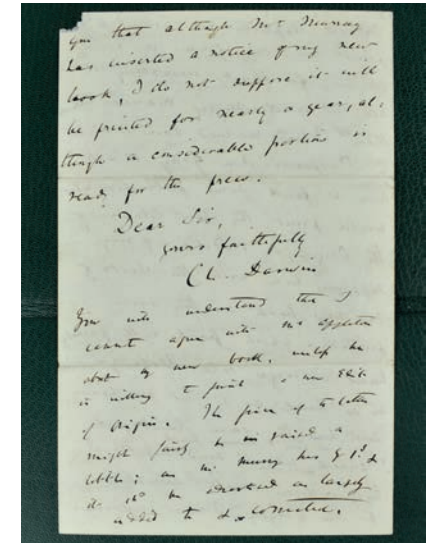 you that although Mr Murray
has inserted a notice of my new
book, I do not suppose it will
be printed for nearly a year, al-
though a considerable portion is
ready for the press.
Dear Sir,
yours faithfully
Ch. Darwin
You will understand that I
cannot agree with Mr Appleton
about my new book, unless he
is willing to print a new Edit
of Origin. The price of the latter
might fairly be raised a
little; as Mr Murray has &
it be as largely
added to & corrected.